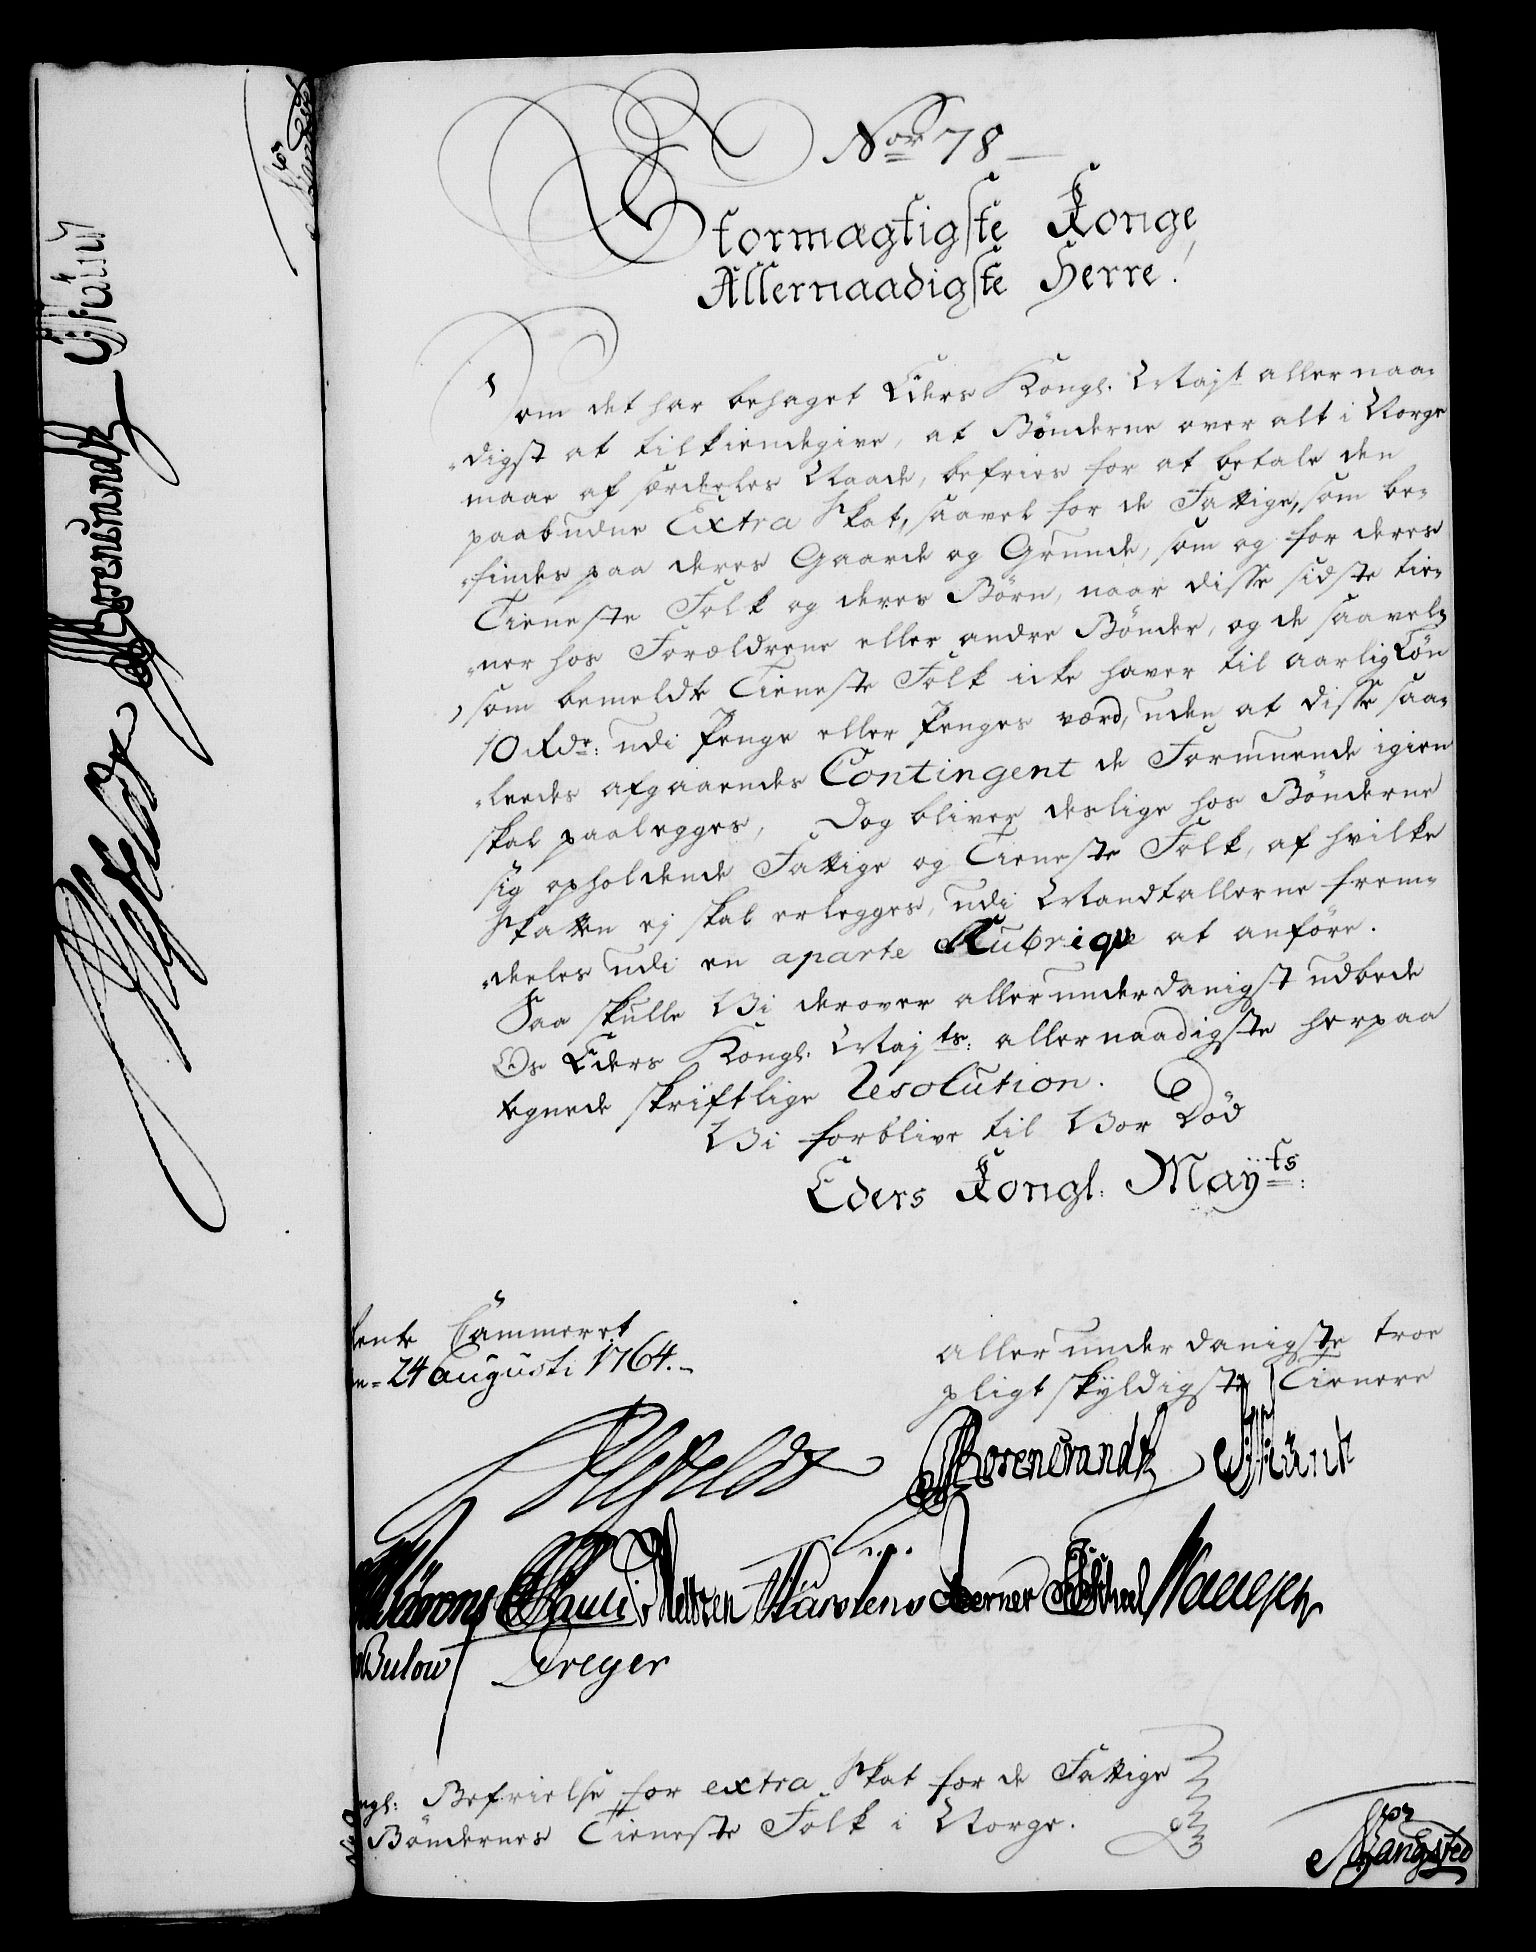 No 78
Stormægtigste Konge
Allernaadigste Herre!
Som det har behaget Eders Kongl. Mayt allernaa-
digst at tilkiendegive, at Bönderne over alt i Norge
maae af særdeles Naade, befries for at betale den
paabudne Extra Skat, saavel for de Fattige, som be-
findes paa deres Gaarde og Grunde, som og for deres
Tieneste Folk og deres Börn, naar disse sidste tie-
ner hos Forældrene eller andre Bönder, og de saavel,
som bemeldte Tieneste Folk icke haver til aarlig Lön
10 Rdr: udi Penge eller Penges værd, uden at disse saa-
leedes afgaaendes Contingent de Formuende igien
skal paalegges, Dog bliver deslige hos Bönderne
sig opholdende Fattige og Tieneste Folk, af hvilke
Skatten ej skal erlegges, udi Mandtallerne frem-
deeles udi en aparte Rubrique at anföre.
Saa skulle Vi derover allerunderdanigst udbede
Os Eders Kongl. Mayts: allernaadigste herpaa
tegnede skriftlige Resolution.
Vi forblive til Vor Död
Eders Kongl: Mayts:
Rente Cammeret
24 Augusti 1764.
allerunderdanigste troe
pligtskyldigste Tienere
Ahlefeldt Rosencrantz
Pauli Meltzen Karstens Berner
Bulow Dreyer
Befrielse for extra Skat for de Fattige
Böndernes Tieneste Folk i Norge.
Bangsted